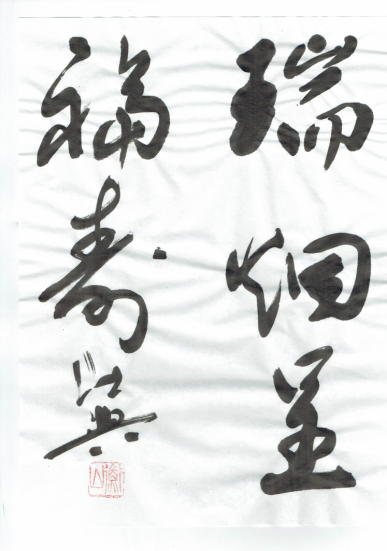 瑞烟呈
福寿